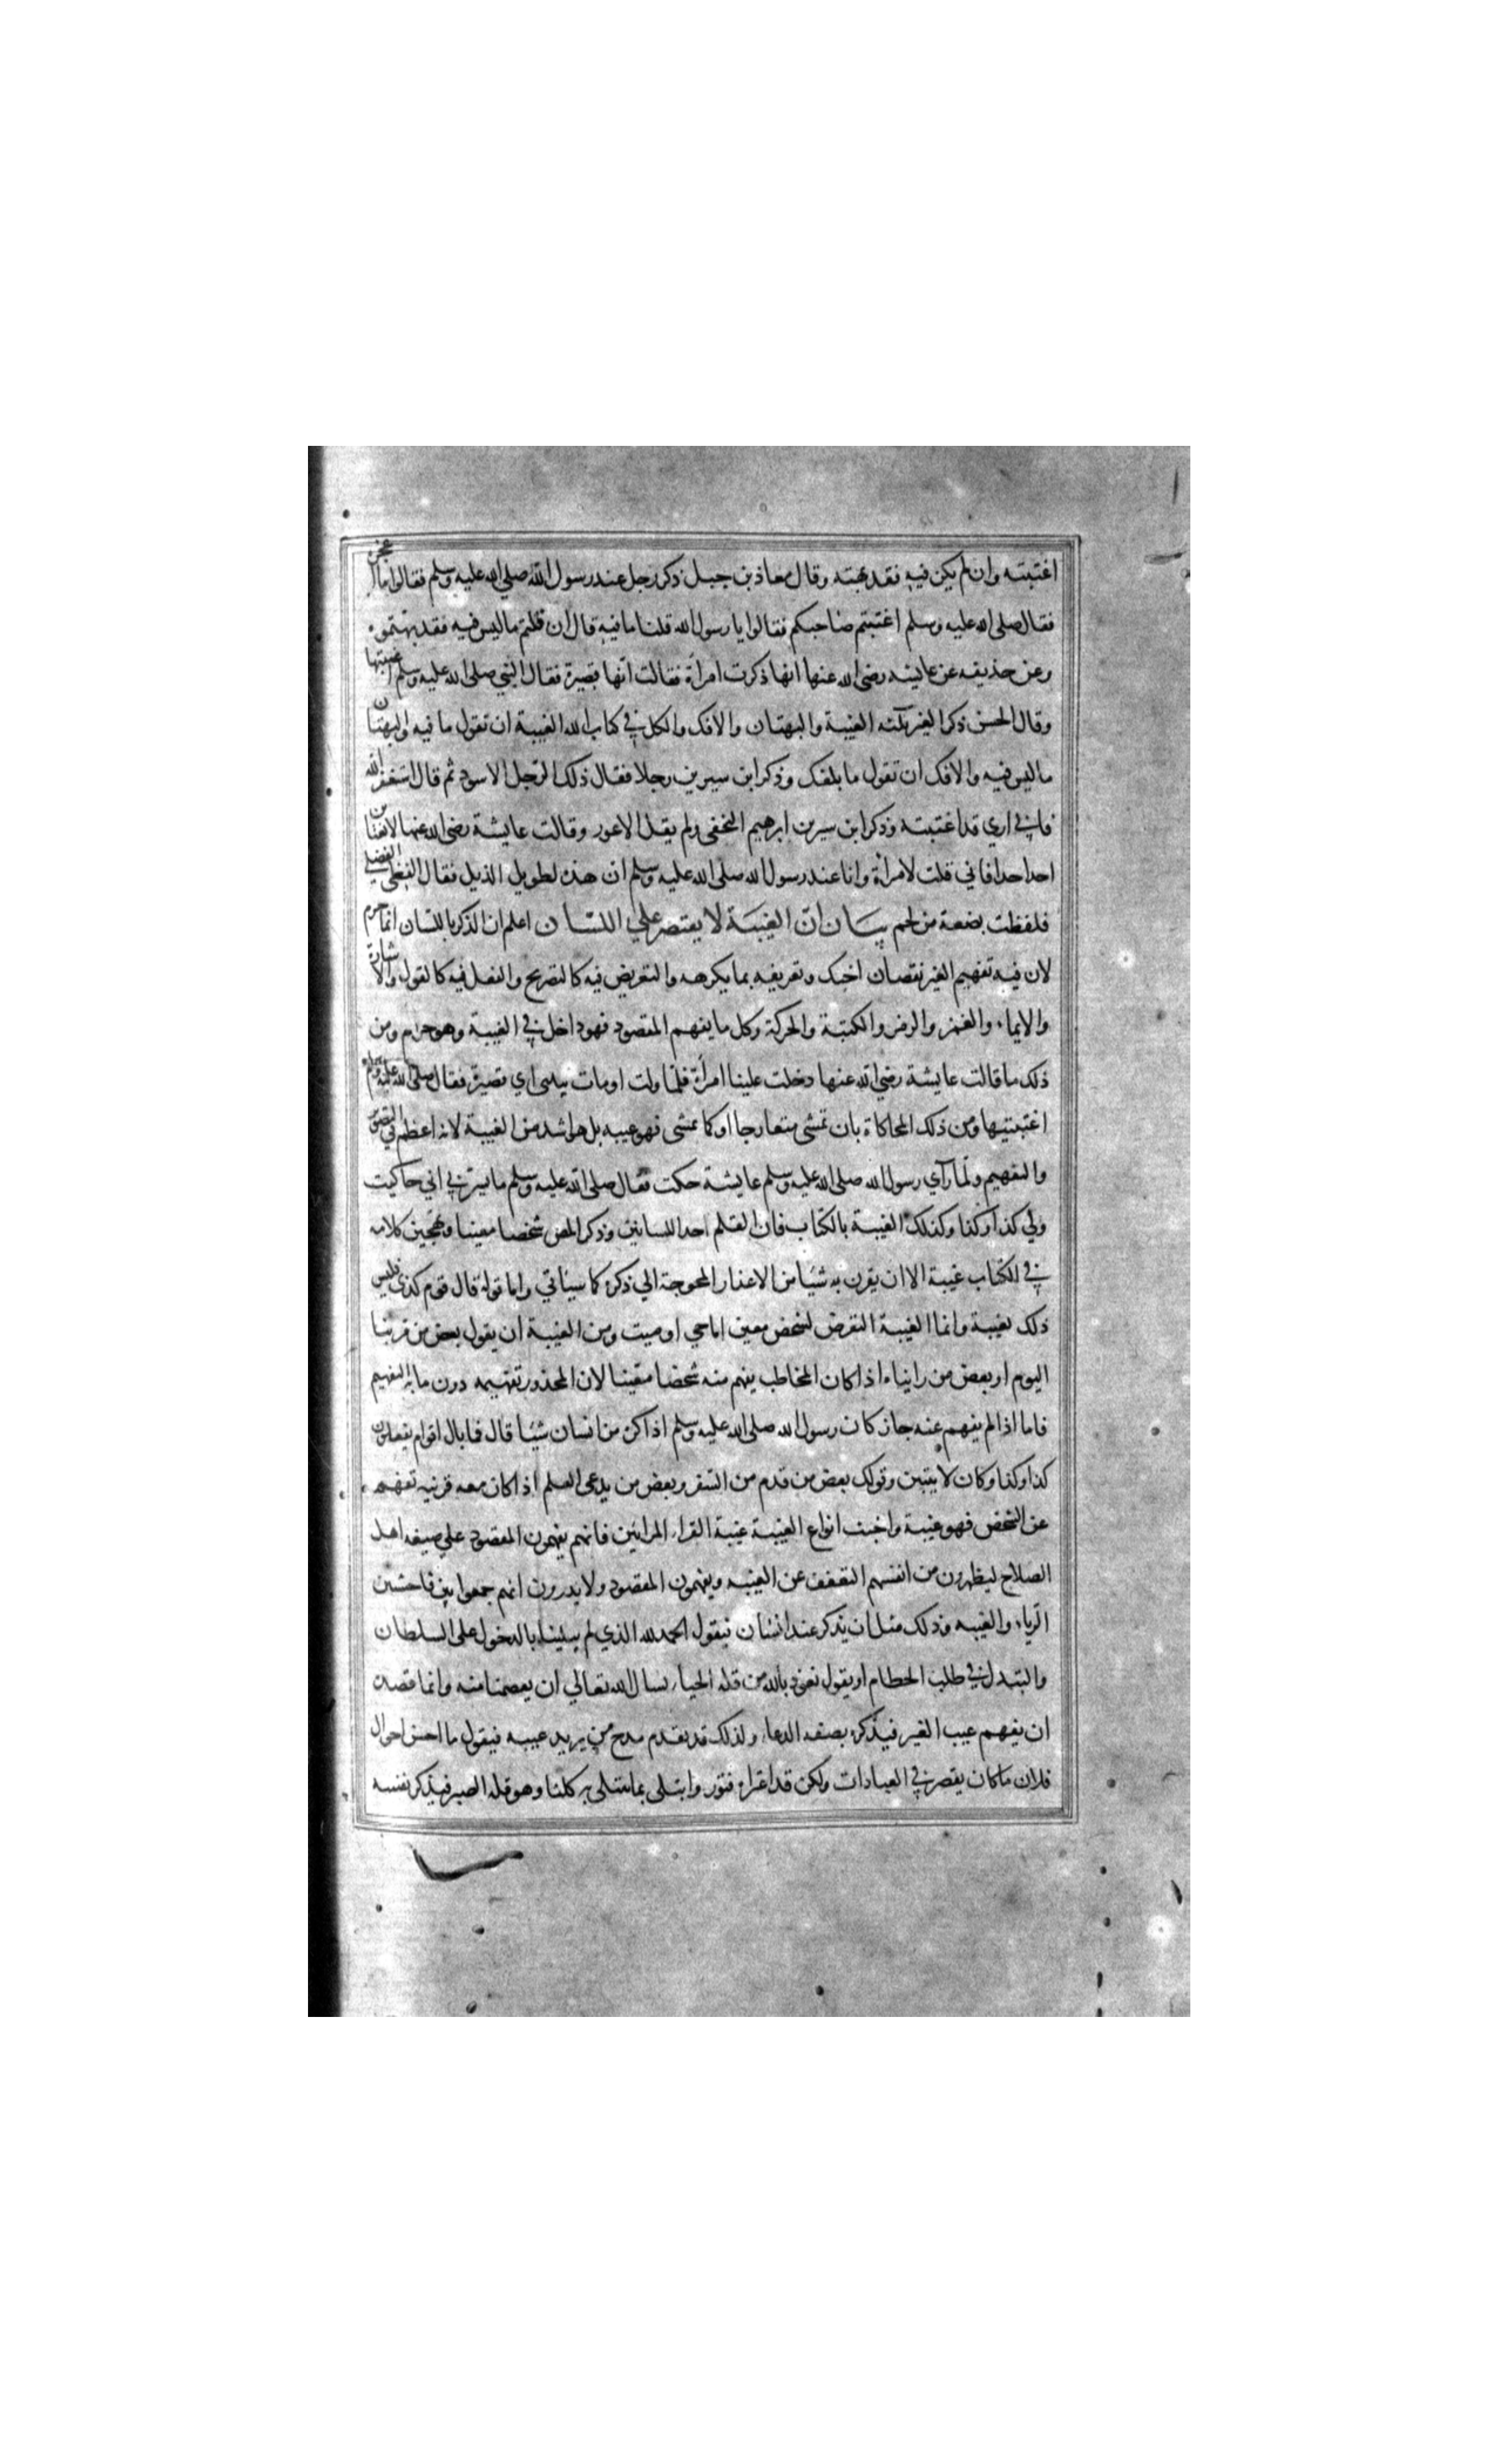 اغتبته وان لم يكن فيه فقد بهته وقال معاذ بن جبل ذكر رجل عند رسول الله صلى الله عليه وسلم فقالوا ما اعجزه
فقال صلى الله عليه وسلم اغتبتم صاحبكم فقالوا يا رسول الله قلنا ما فيه قال ان قلتم ما ليس فيه فقد بهتموه
وعن حذيفه عن عايشه رضى الله عنها انها ذكرت امراة فقالت انها قصيرة فقال النبي صلى الله عليه وسلم اغتبتها
وقال الحسن ذكر الغير ثلثه الغيبة والبهتان والافك والكل في كتاب الله الغيبة ان تقول ما فيه والبهتان
ما ليس فيه والافك ان تقول ما بلغك وذكر ابن سيرين رجلا فقال ذلك الرجل الاسود ثم قال استغفر الله
فاني اري قد اغتبته وذكر ابن سيرين ابرهيم النخعى ولم يقل الاعور وقالت عايشة رضى الله عنها لا يغتابن
احد احدا فاني قلت لامراة وانا عند رسول الله صلى الله عليه وسلم ان هذه لطويل الذيل فقال الفظى
فلفظت بضعة من لحم بيان ان الغيبة لا يقتصر علي اللسان اعلم ان الذكر باللسان انما حرم
لان فيه تفهيم الغير نقصان اخيك وتعريفه بما يكرهه والتعريض فيه كالتصريح والفعل فيه كالقول والاشارة
والايماء والغمز والرمز والكتبة والحركة وكل ما يفهم المقصود فهو داخل في الغيبة وهو حرام ومن
ذلك ما قالت عايشة رضي الله عنها دخلت علينا امراة فلما ولت اومات بيدى اي قصيرة فقال صلى الله عليه وسلم
اغتبتيها ومن ذلك المحاكاة بان تمشى متعارجا او كما يمشى فهو غيبه بل هو اشد من الغيبة لانه اعظم في التصوير
والتفهيم ولما رآي رسول الله صلى الله عليه وسلم عايشة حكت فقال صلى الله عليه وسلم ما يسرني اني حاكيت
ولي كذا وكذا وكذلك الغيبة بالكتاب فان القلم احد اللسانين وذكر المص شخصا معينا وتهجين كلامه
في الكتاب غيبة الا ان يقرن به شيئا من الاعذار المحوجة الي ذكره كما سياتي واما قوله قال قوم كذى فليس
ذلك بغيبة وانما الغيبة التعرض لشخص معين اما حي او ميت ومن الغيبة ان يقول بعض من مر بنا
اليوم او بعض من رايناه اذا كان المخاطب يفهم منه شخصا معينا لان المحذور تفهيمه دون ما به التفهيم
فاما اذا لم يفهم عنه جاز كان رسول الله صلى الله عليه وسلم اذا كره من انسان شيئا قال فما بال اقوام يفعلون
كذا وكذا وكان لا يتبين وقولك بعض من قدم من السفر وبعض من يدعى العلم اذا كان معه قرنيه تفهم
عن الشخص فهو غيبة واخبث انواع الغيبة غيبة القراء المرايين فانهم يفهمون المقصود علي صيغه اهل
الصلاح ليظهرون من انفسهم التعفف عن الغيبه ويفهمون المقصود ولا يدرون انهم جمعوا بين فاحشتين
الرياء والغيبه وذلك مثل ان يذكر عند انسان فيقول الحمد لله الذي لم يبلينا بالدخول على السلطان
والتبدل في طلب الحطام او يقول نعوذ بالله من قله الحياء نسال الله تعالي ان يعصمنا منه وانما قصده
ان يفهم عيب الغير فيذكره بصيغه الدعاء ولذلك قد يقدم مدح من يريد عيبه فيقول ما احسن احوال
فلان ما كان يقصر في العبادات ولكن قد اعتراه فتور وابتلى بما يبتلى به كلنا وهو قله الصبر فيذكر نفسه